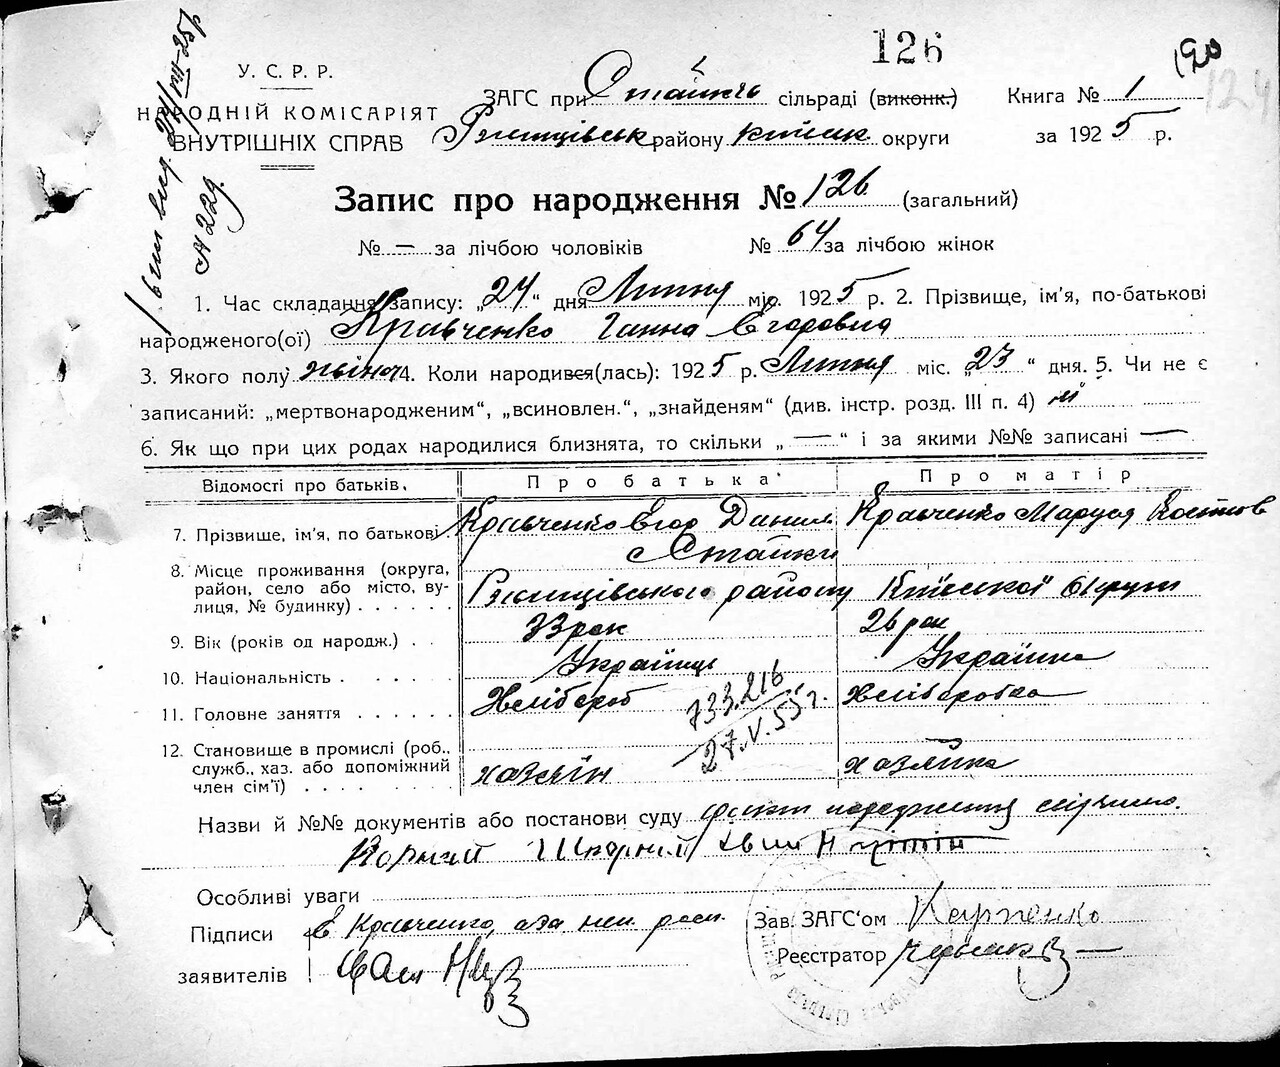 126
190
124
У. С. Р. Р.
НАРОДНІЙ КОМІСАРІЯТ
ВНУТРІШНІХ СПРАВ
ЗАГС при Стайкъ сільраді (виконк.)
Ржищівськ району київськ округи
Книга № 1
за 1925 р.
№ 229
Запис про народження № 126 (загальний)
№ — за лічбою чоловіків № 64 за лічбою жінок
1. Час складання запису: „24“ дня Липня міс. 1925 р. 2. Прізвище, ім’я, по-батькові
народженого(ої) Кравченко Ганна Єгоровна
3. Якого полу жіноч 4. Коли народився(лась): 1925 р. Липня міс. „23“ дня. 5. Чи не є
записаний: „мертвонародженим“, „всиновлен.“, „знайденям“ (див. інстр. розд. III п. 4) ні
6. Як що при цих родах народилися близнята, то скільки „—“ і за якими №№ записані —
Відомості про батьків. Про батька Про матір
7. Прізвище, ім’я, по батькові. Кравченко Єгор Данил Кравченко Маруся Костов
Стайки
8. Місце проживання (округа, район, село або місто, вулиця, № будинку) Ржищівського району Київської округи
9. Вік (років од народж.) 33 рок 26 рок
10. Національність Українць Українка
11. Головне заняття Хлібороб Хліборобка
733.216
27.V.55 г.
12. Становище в промислі (роб., служб., хаз. або допоміжний член сім’ї) хазяїн хазяйка
Назви й №№ документів або постанови суду факт народження свідчимо.
Корній
Особливі уваги
Підписи заявителів Кравченко, а за неп. расп.
Зав. ЗАГС‘ом Карпенко
Реєстратор